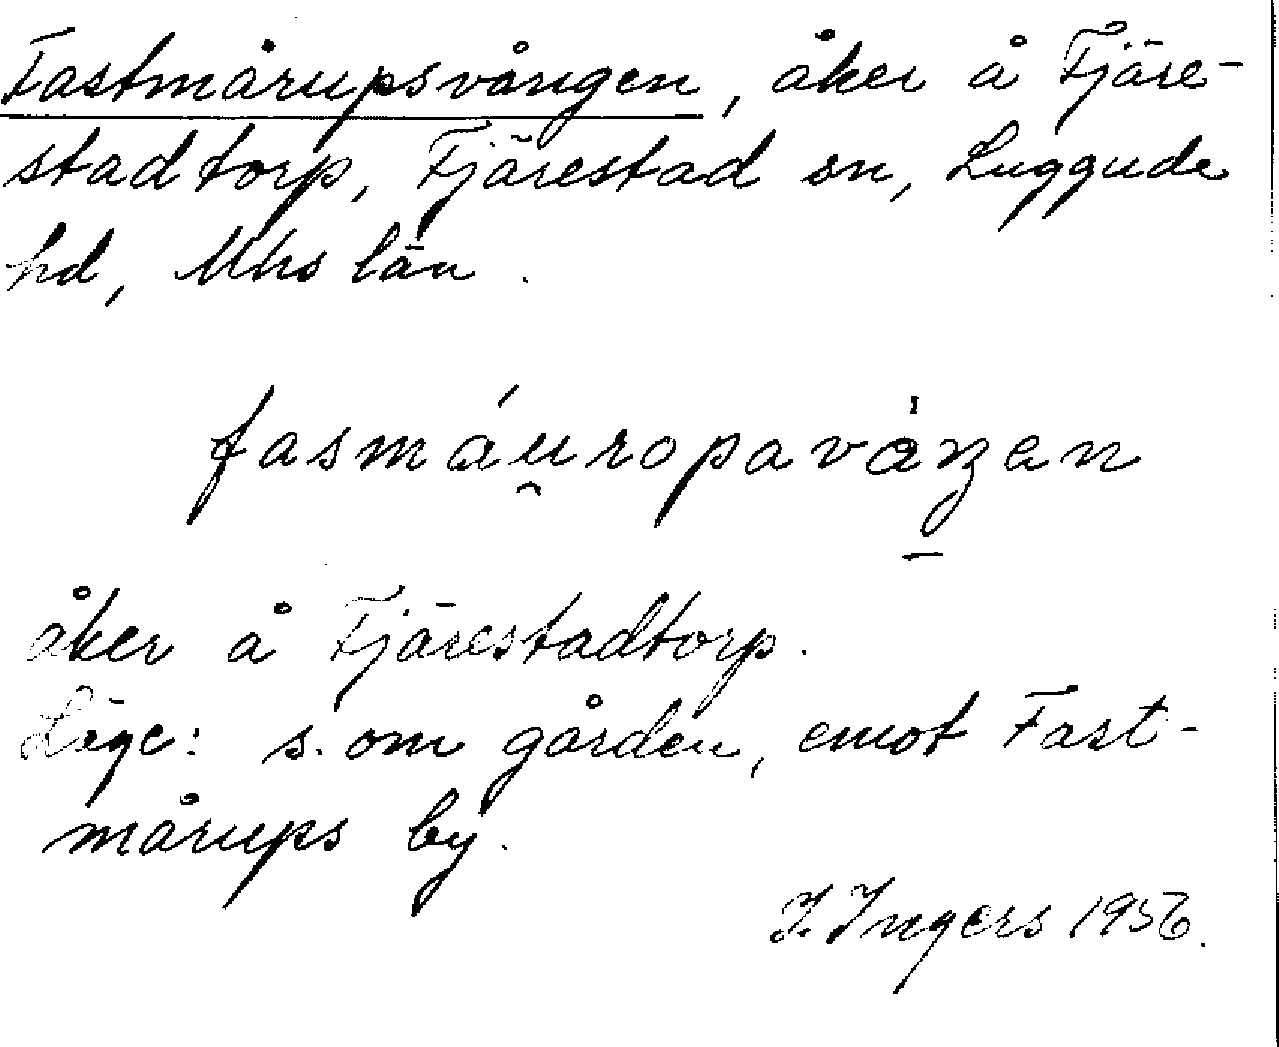 Fastmårupsvången, åker å Fjäre-
stadtorp, Fjärestad sn, Luggude
hd, Mhs län.
fasmáu̯ropavȧŋen
åker å Fjärestadtorp.
Läge: s. om gården, emot Fast-
mårups by.
I. Ingers 1956.